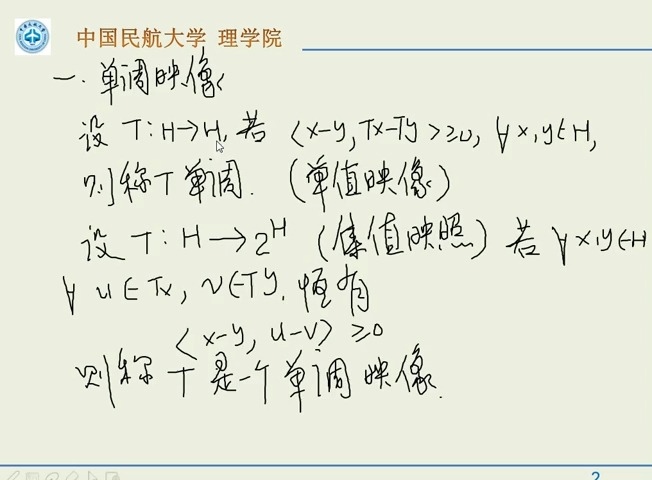 中国民航大学 理学院
一. 单调映像
设 T: H→H, 若 <x-y, Tx-Ty>≥0, ∀x,y∈H,
则称T单调. (单值映像)
设 T: H→2^H (集值映照) 若 ∀x,y∈H
∀ u∈Tx, v∈Ty, 恒有
<x-y, u-v> ≥0
则称 T 是一个单调映像.
2